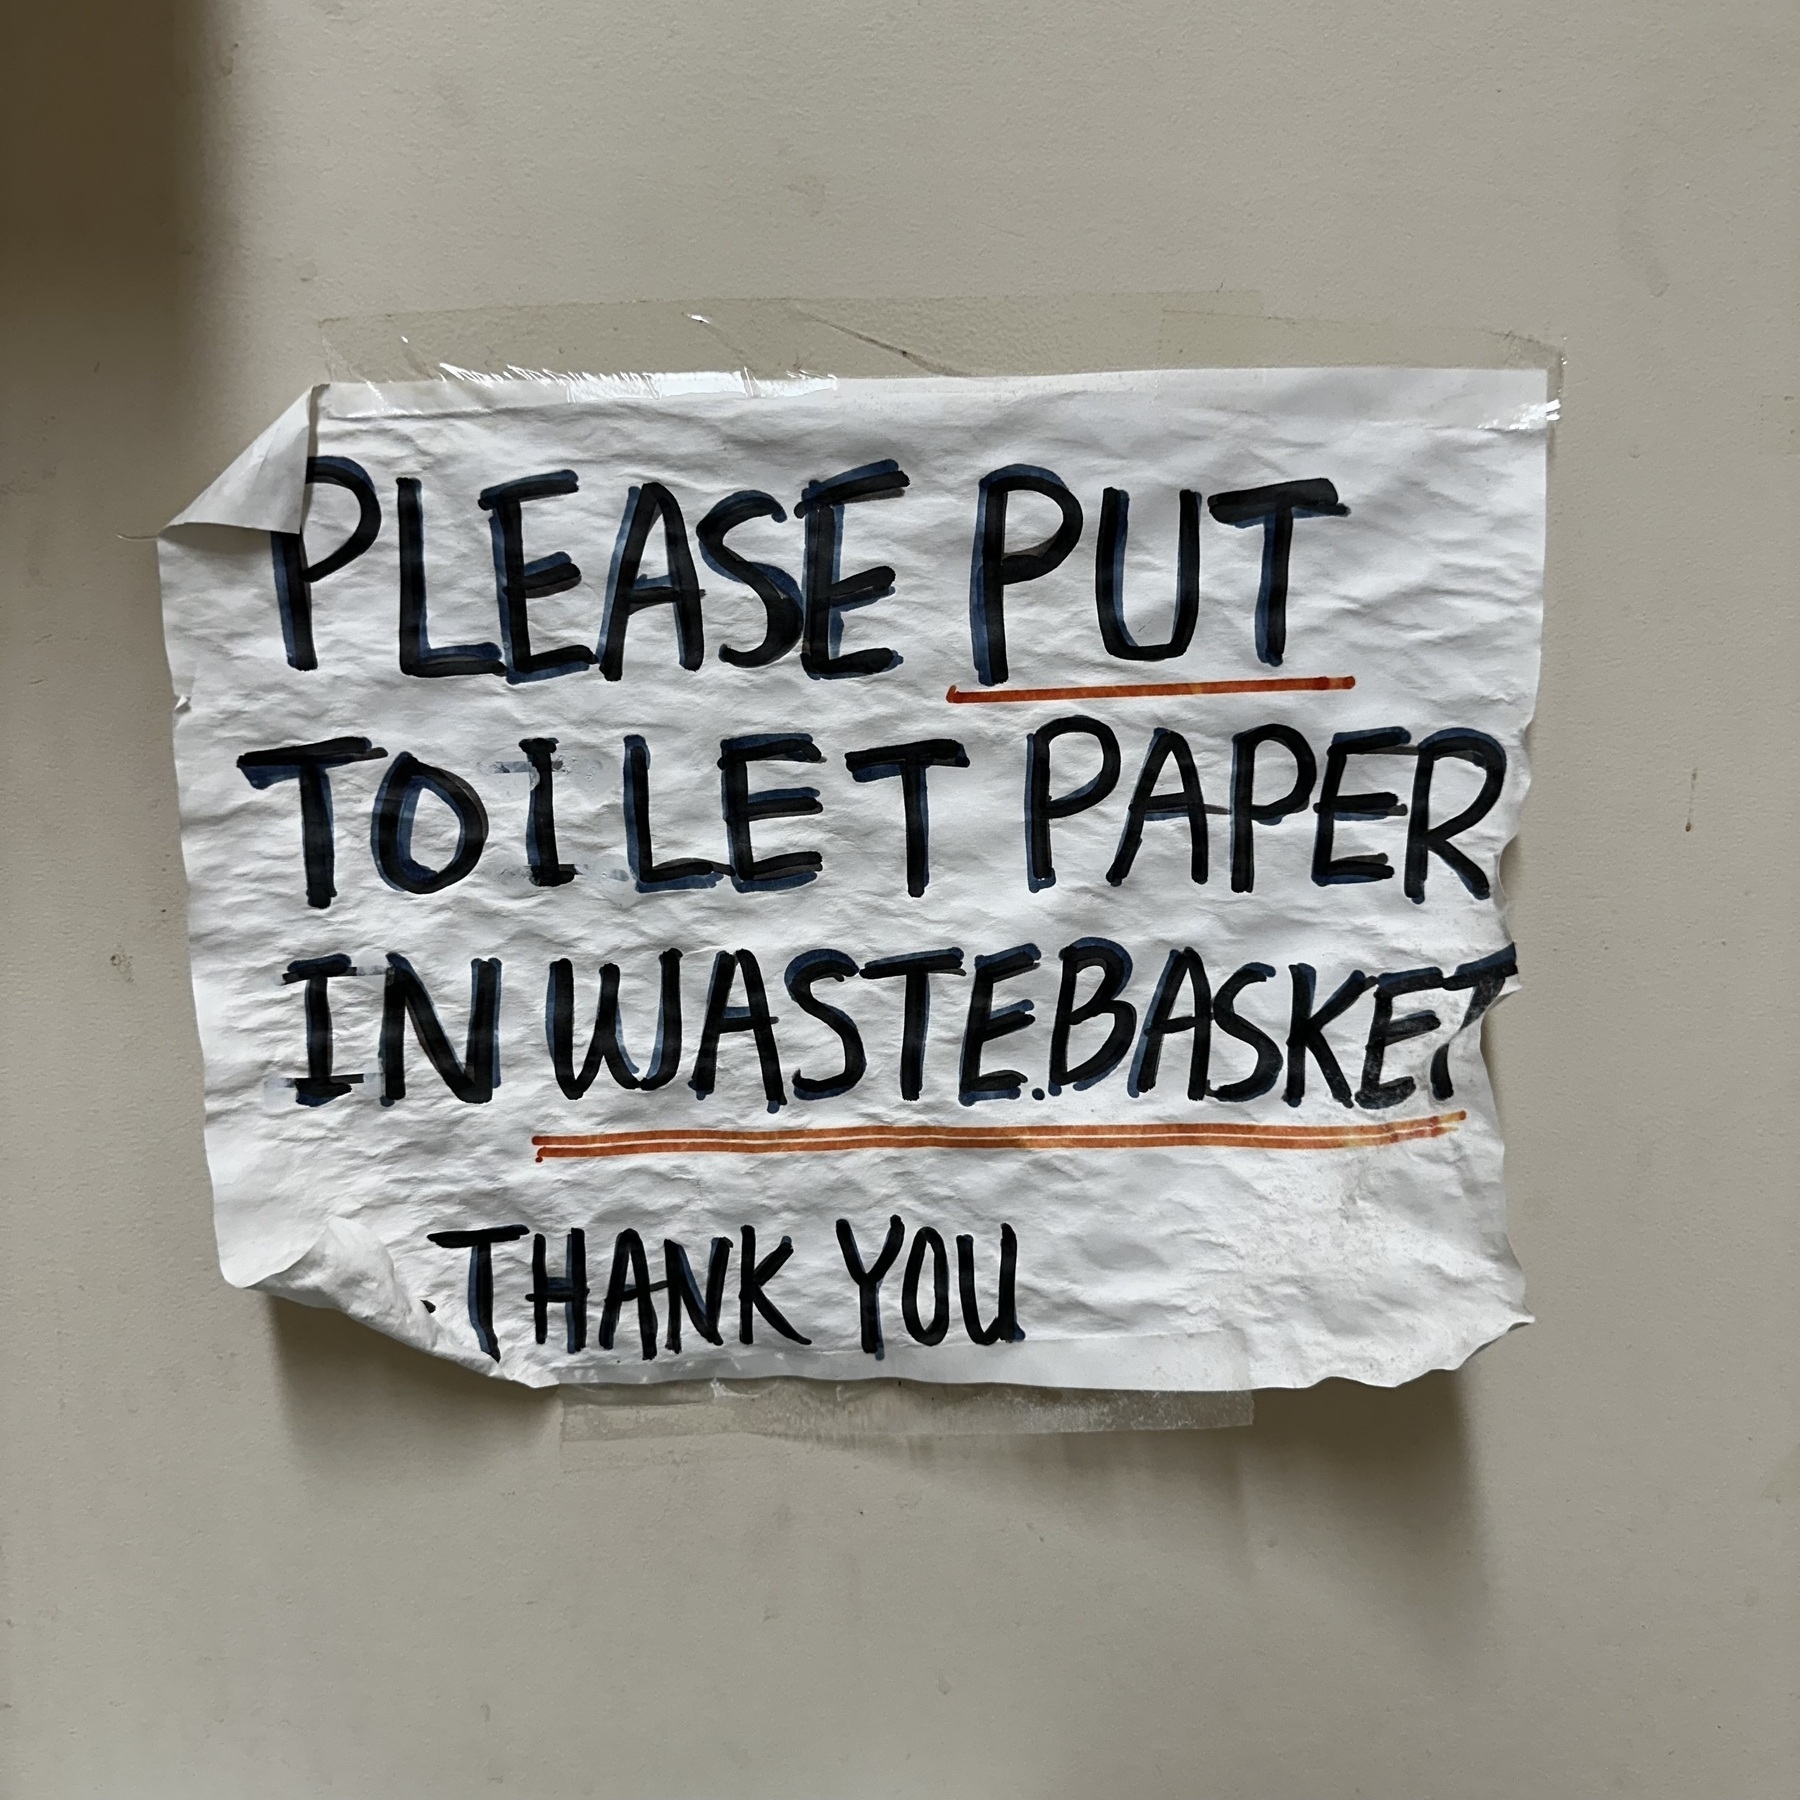 PLEASE PUT
TOILET PAPER
IN WASTE.BASKET
THANK YOU